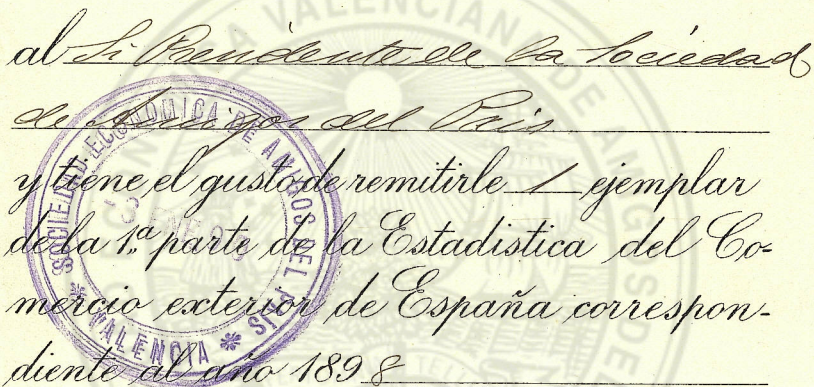 al Sr Presidente de la Sociedad
de Amigos del Pais
y tiene el gusto de remitirle 1 ejemplar
de la 1.ª parte de la Estadistica del Co-
mercio exterior de España correspon-
diente al año 1898
SOCIEDAD-ECONOMICA DE AMIGOS DEL PAIS
* VALENCIA *
ENE